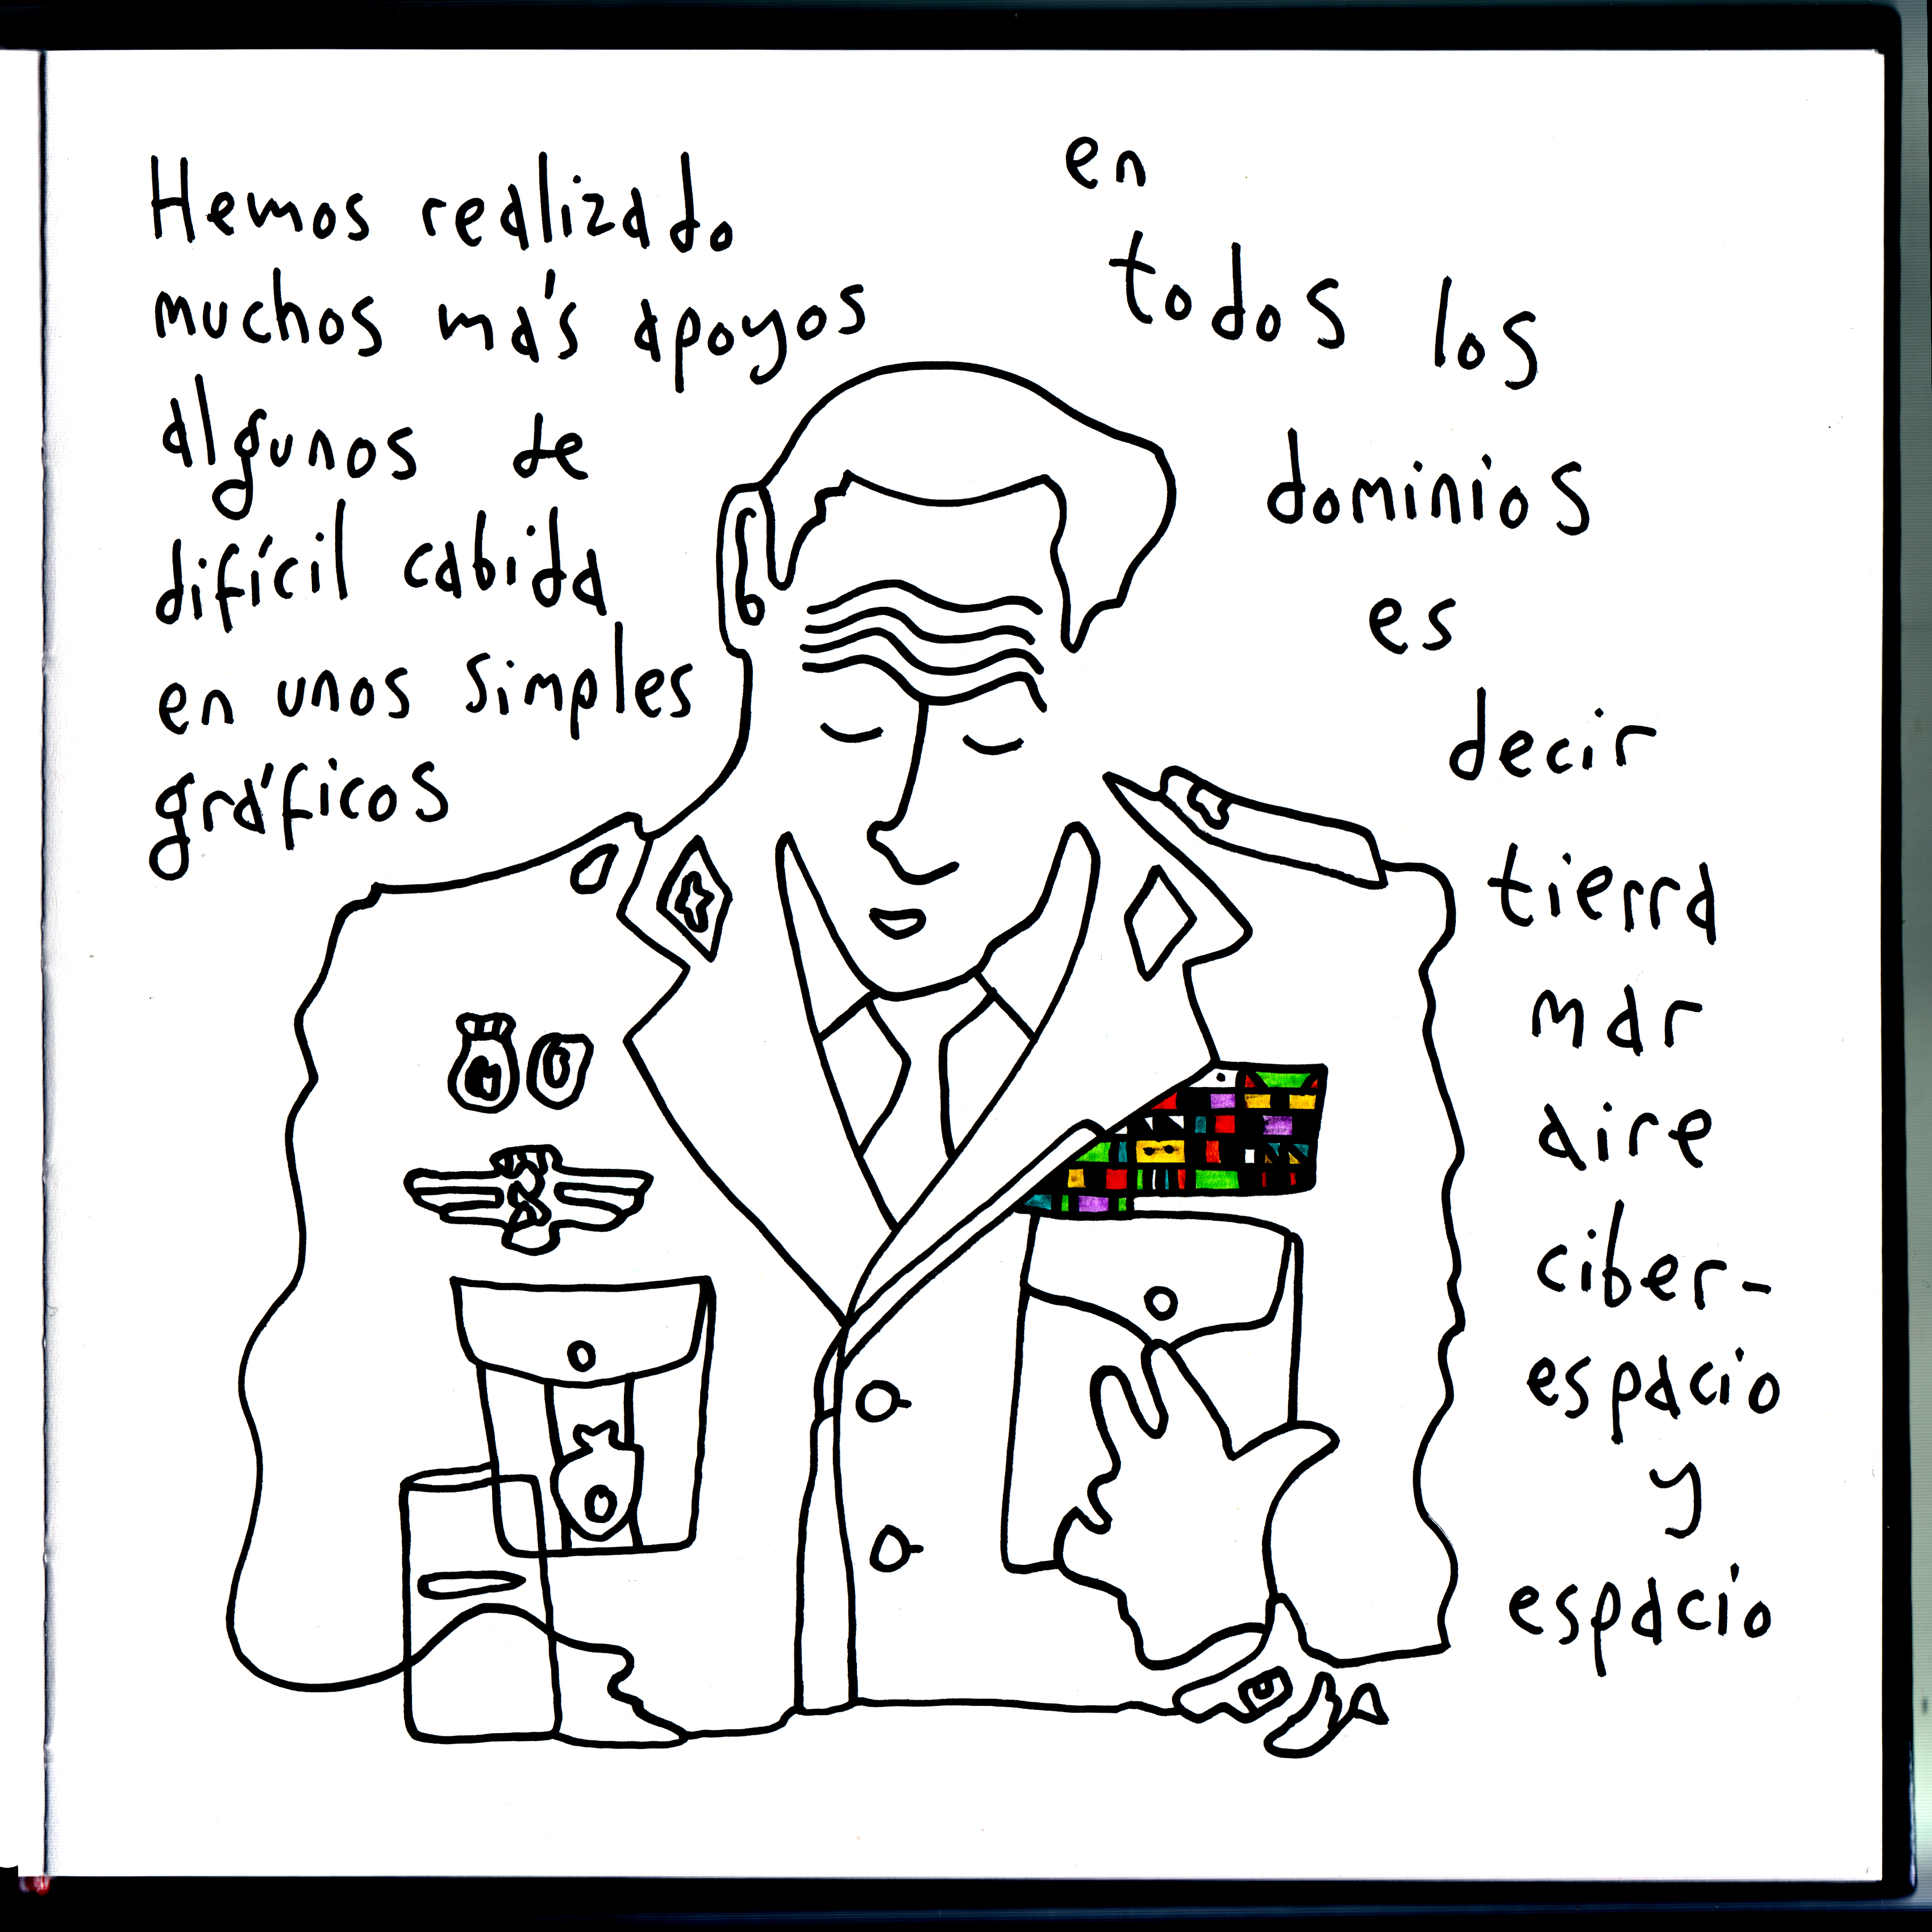 Hemos realizado
muchos más apoyos
algunos de
difícil cabida
en unos simples
gráficos
en
todos los
dominios
es
decir
tierra
mar
aire
ciber-
espacio
y
espacio